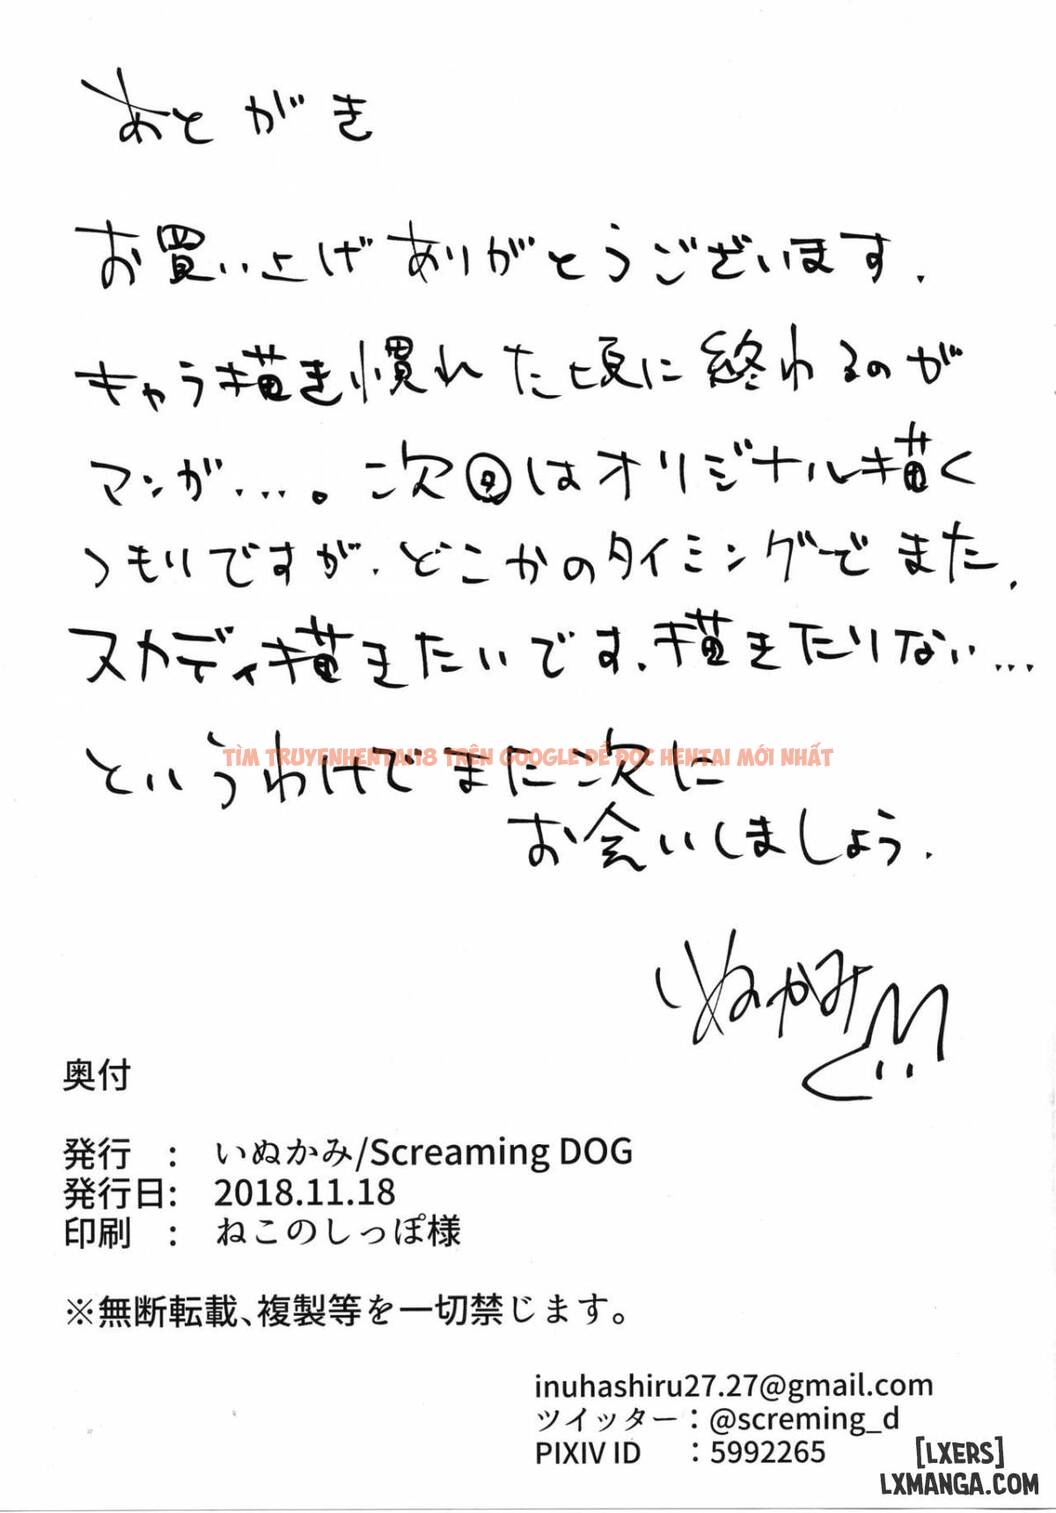 あとがき
お買い上げありがとうございます.
キャラ描き慣れた頃に終わるのが
マンガ…。次回はオリジナル描く
つもりですが、どこかのタイミングでまた、
スカディ描きたいです、描きたりない…
TÌM TRUYENHENTAI18 TRÊN GOOGLE ĐỂ ĐỌC HENTAI MỚI NHẤT
というわけでまた次に
お会いしましょう.
いぬかみ
奥付
発行 : いぬかみ/Screaming DOG
発行日: 2018.11.18
印刷 : ねこのしっぽ様
※無断転載、複製等を一切禁じます。
inuhashiru27.27@gmail.com
ツイッター：@screming_d
PIXIV ID ：5992265
[LXERS]
LXMANGA.COM